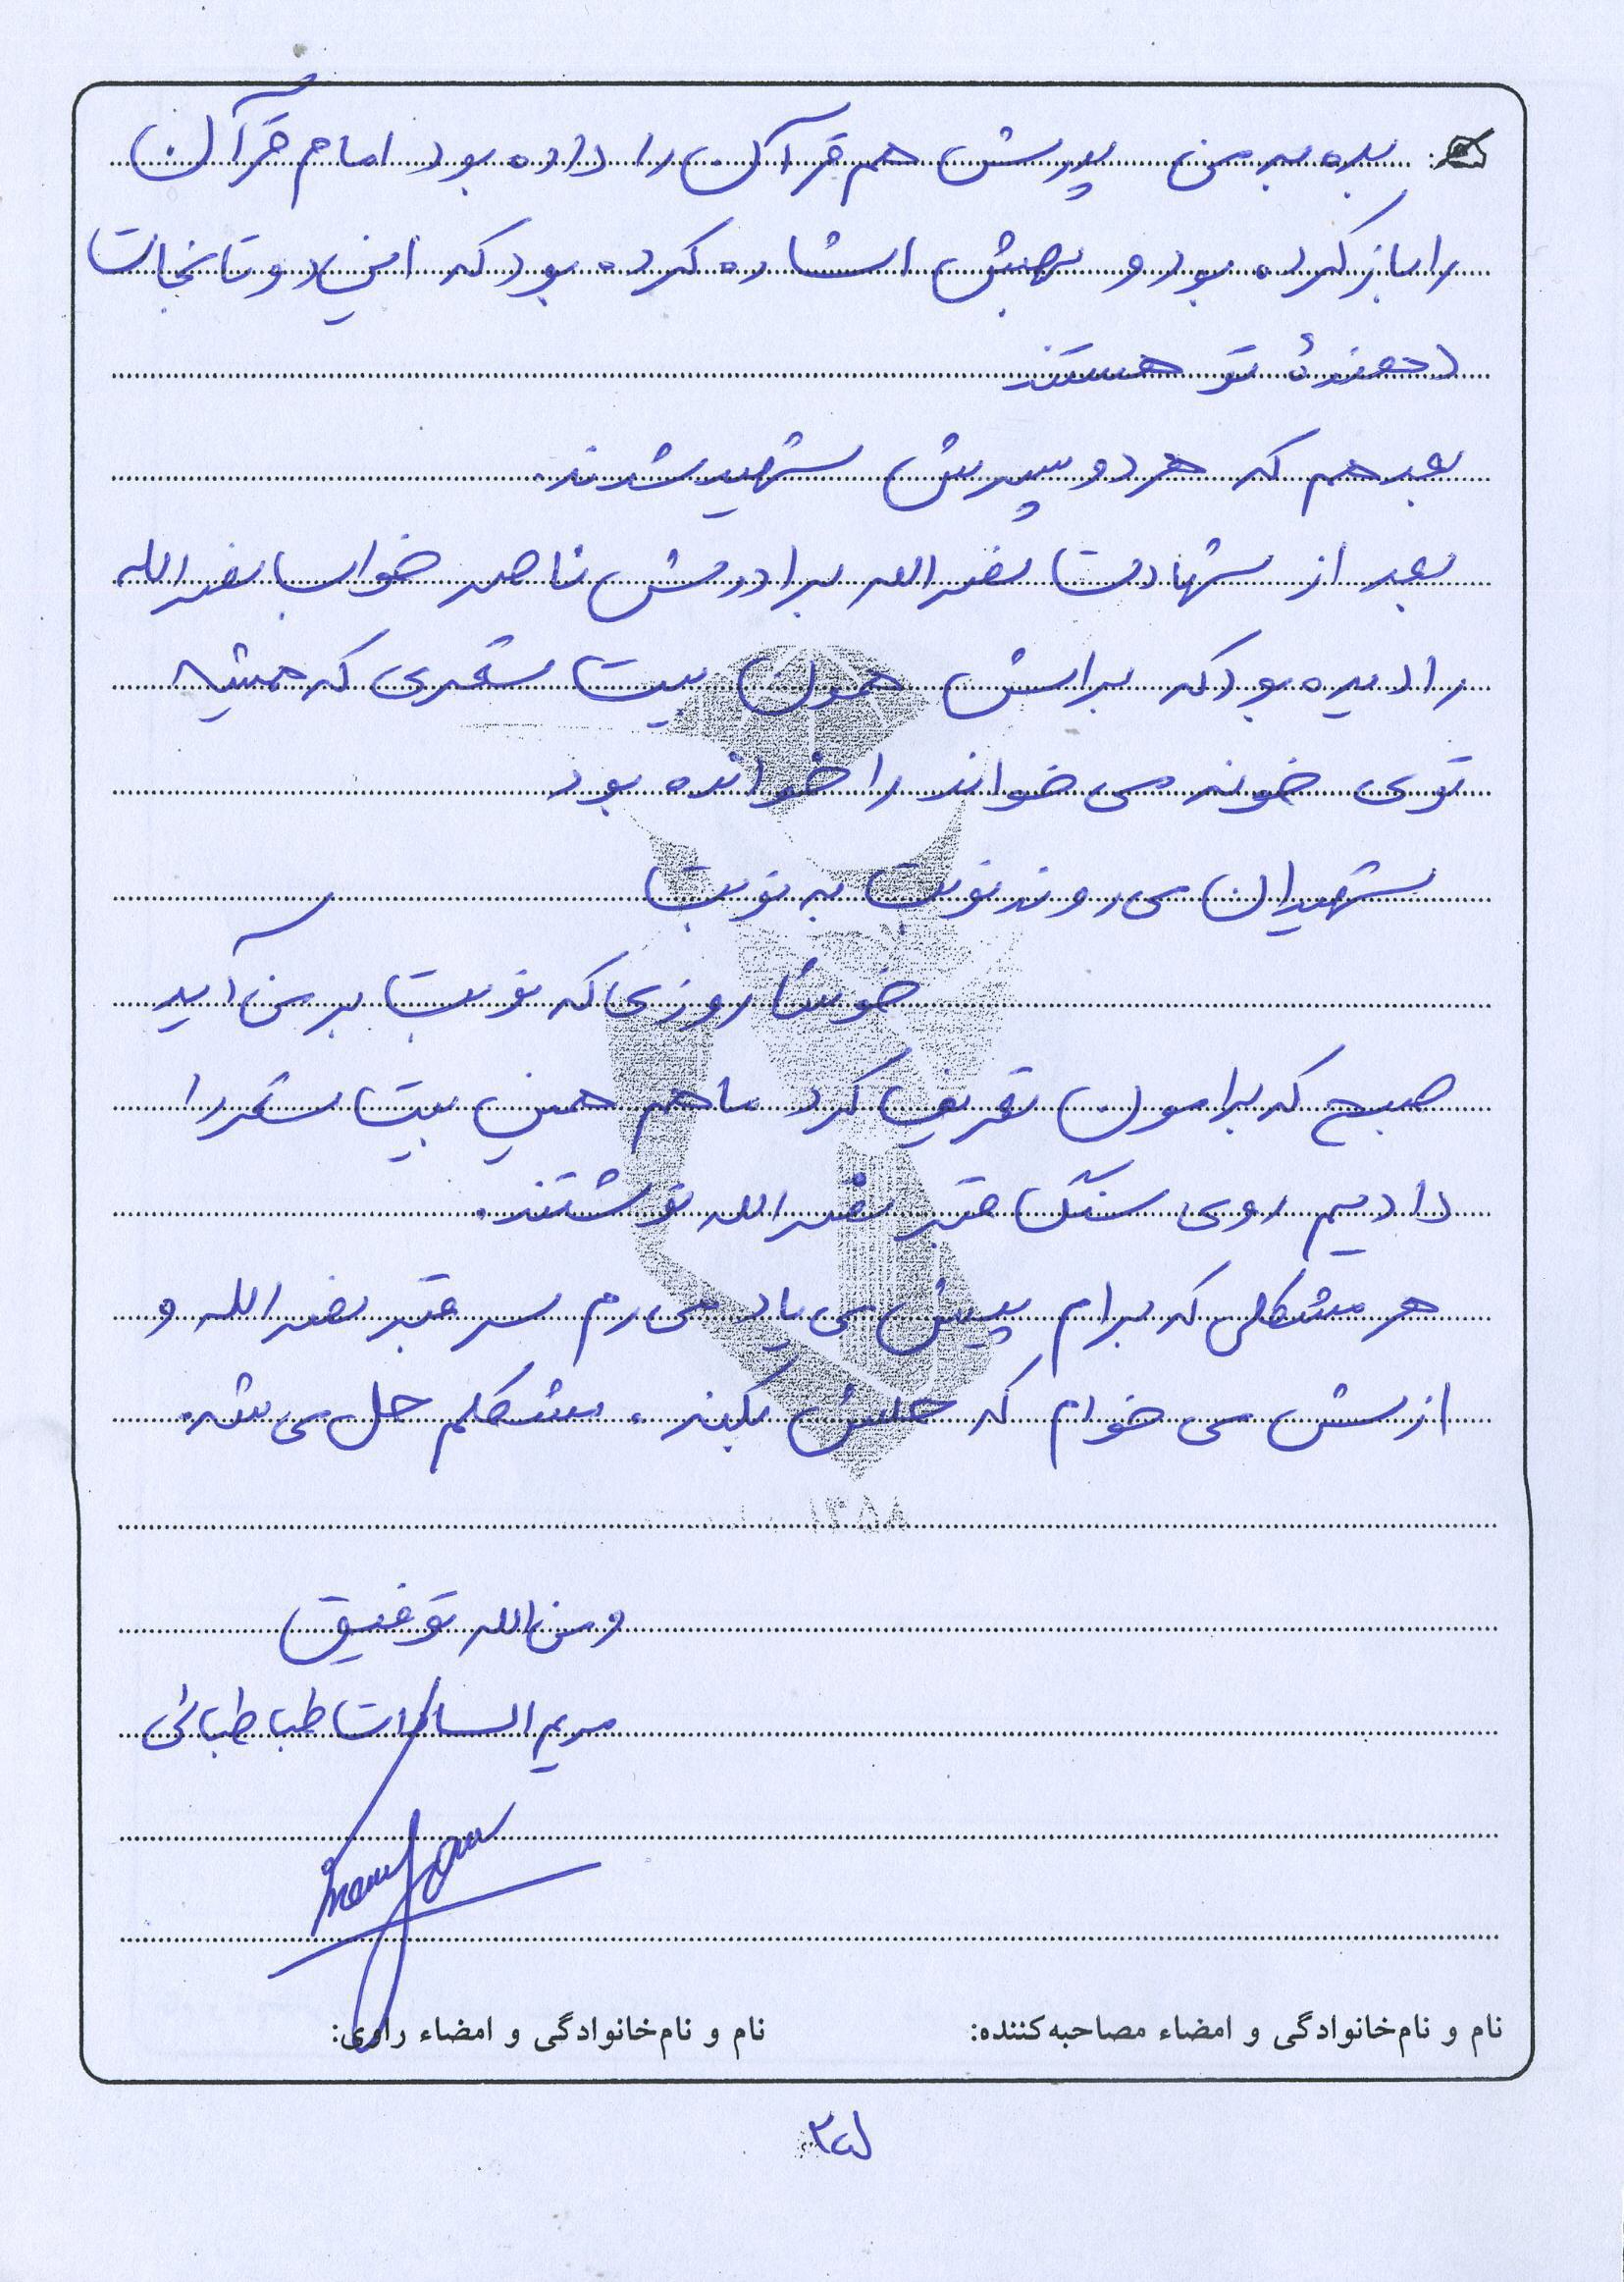 بده به من پدرش هم قرآن را داده بود امام قرآن
را باز کرده بود و بهش اشاره کرده بود که این دو تا نجات
دهندهٔ تو هستند
بعد هم که هر دو پسرش شهید شدند.
بعد از شهادت نصرالله برادرش ناصر خواب نصرالله
را دیده بود که براش همون بیت شعری که همیشه
توی خونه می خواند را خوانده بود
شهیدان می روند نوبت به نوبت
خوشا روزی که نوبت بر من آید
صبح که برامون تعریف کرد ما هم همین بیت شعر را
دادیم روی سنگ قبر نصرالله نوشتند.
هر مشکلی که برام پیش می یاد می رم سر قبر نصرالله و
ازش می خوام که حلش بکند. مشکلم حل می شه.
۱۳۵۸
و من الله توفیق
مریم السادات طباطبائی
نام و نام‌خانوادگی و امضاء مصاحبه‌کننده: نام و نام‌خانوادگی و امضاء راوی: